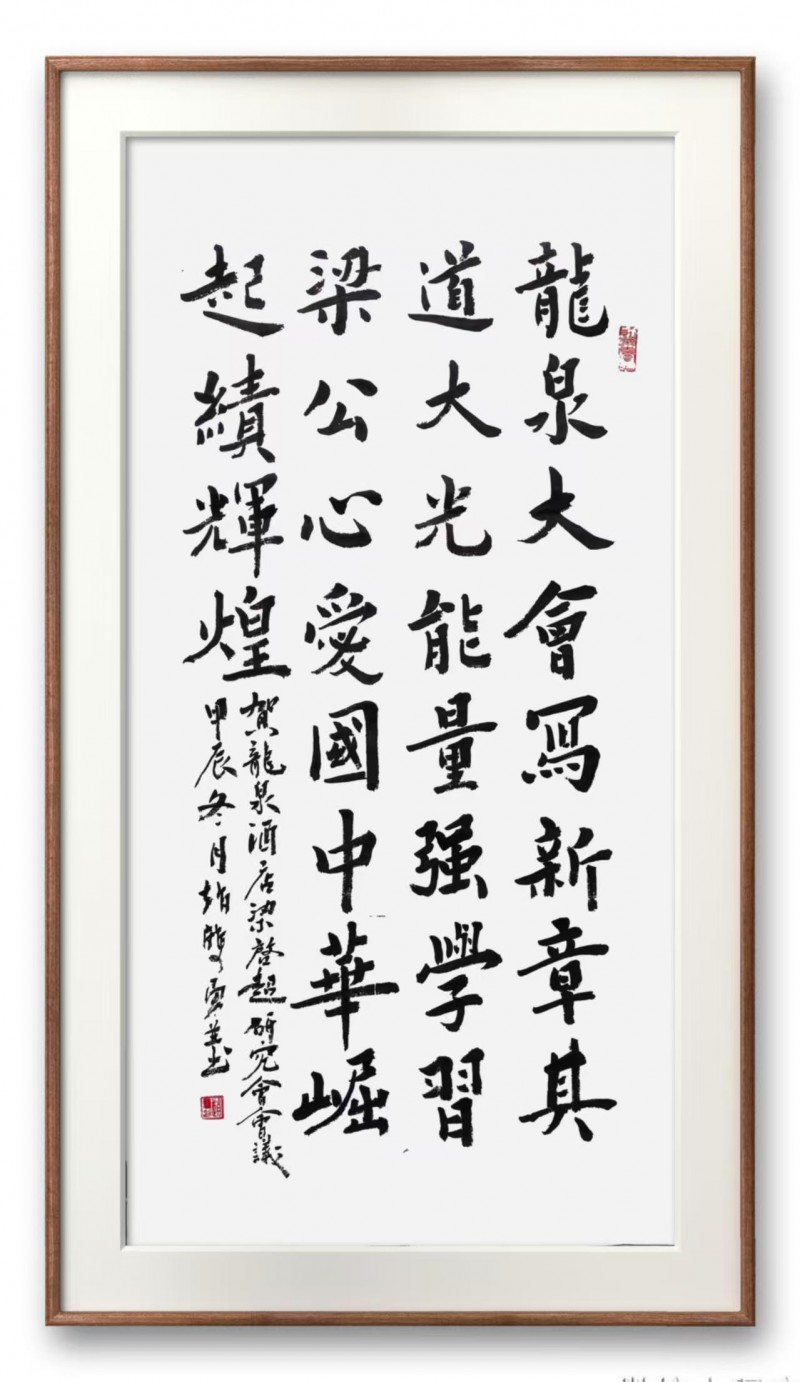 龍泉大會寫新章其
道大光能量强學習
梁公心愛國中華崛
起續輝煌
賀龍泉酒店梁啓超研究會會議
甲辰冬月趙雙勇并書